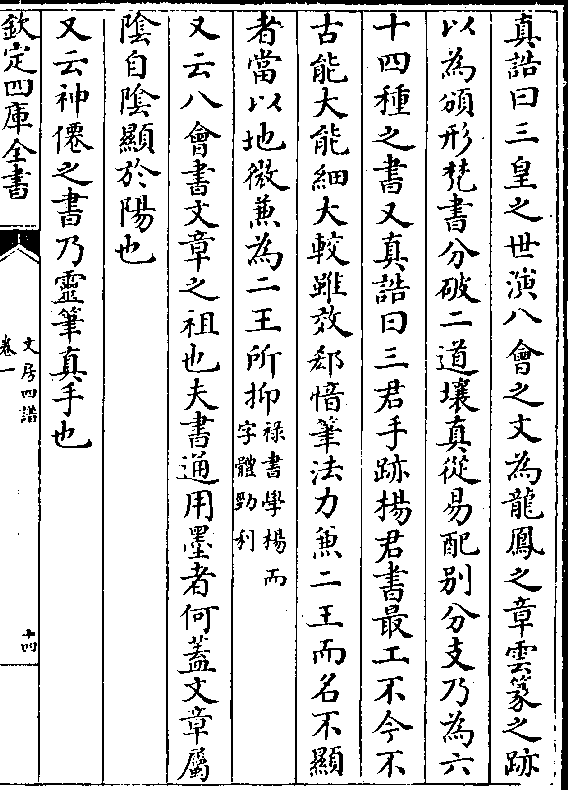 真誥曰三皇之世演八會之文為龍鳳之章雲篆之跡
以為頒形梵書分破二道壤真從易配別分支乃為六
十四種之書又真誥曰三君手跡楊君書最工不今不
古能大能細大較雖效郄愔筆法力兼二王而名不顯
者當以地微兼為二王所抑祿書學楊而
字體勁利
又云八會書文章之祖也夫書通用墨者何蓋文章屬
陰自陰顯於陽也
又云神僊之書乃靈筆真手也
欽定四庫全書
文房四譜
卷一
十四